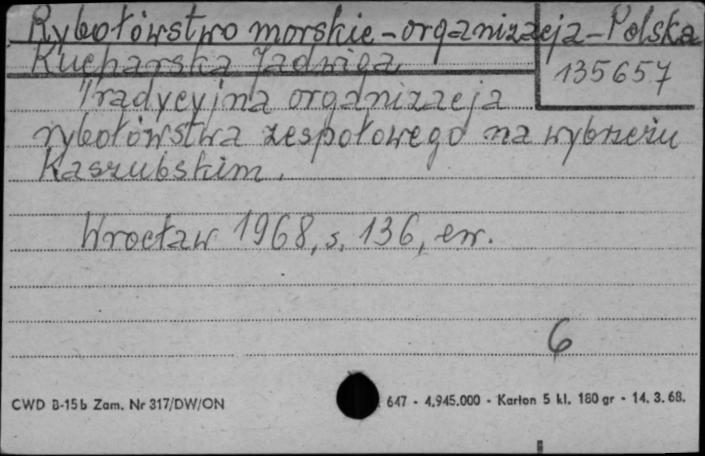 Rybołówstwo morskie - organizacja - Polska
Kucharska Jadwiga
135657
Tradycyjna organizacja
rybołówstwa zespołowego na wybrzeżu
Kaszubskim.
Wrocław 1968, s. 136, err.
6
CWD B-15b Zam. Nr 317/DW/ON
647 - 4.945.000 - Karton 5 kl. 180 gr - 14. 3. 68.